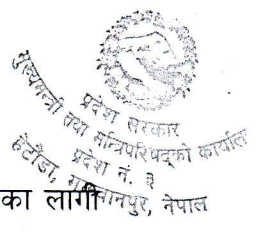 प्रदेश सरकार
मुख्यमन्त्री तथा मन्त्रिपरिषद्को कार्यालय
प्रदेश नं. ३
हेटौंडा, मकवानपुर, नेपाल
का लागी